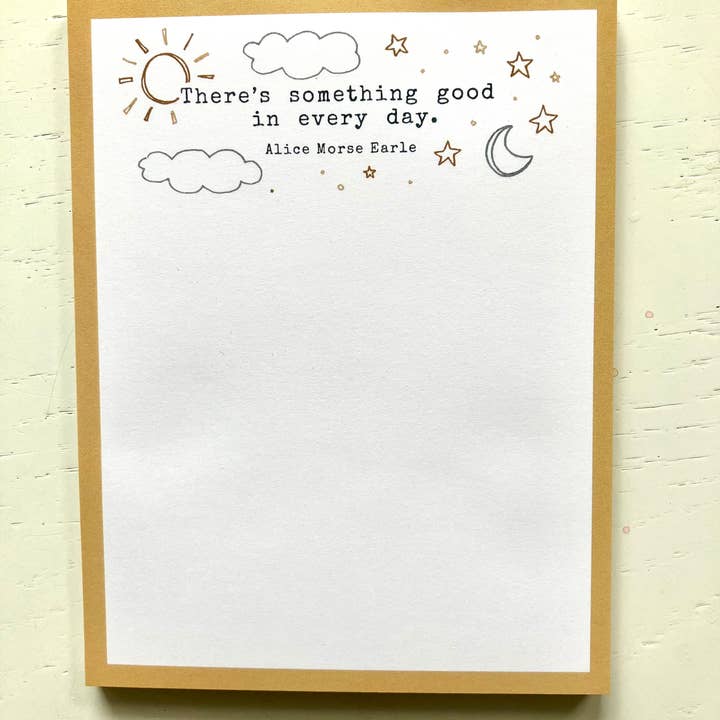 There's something good
in every day.
Alice Morse Earle